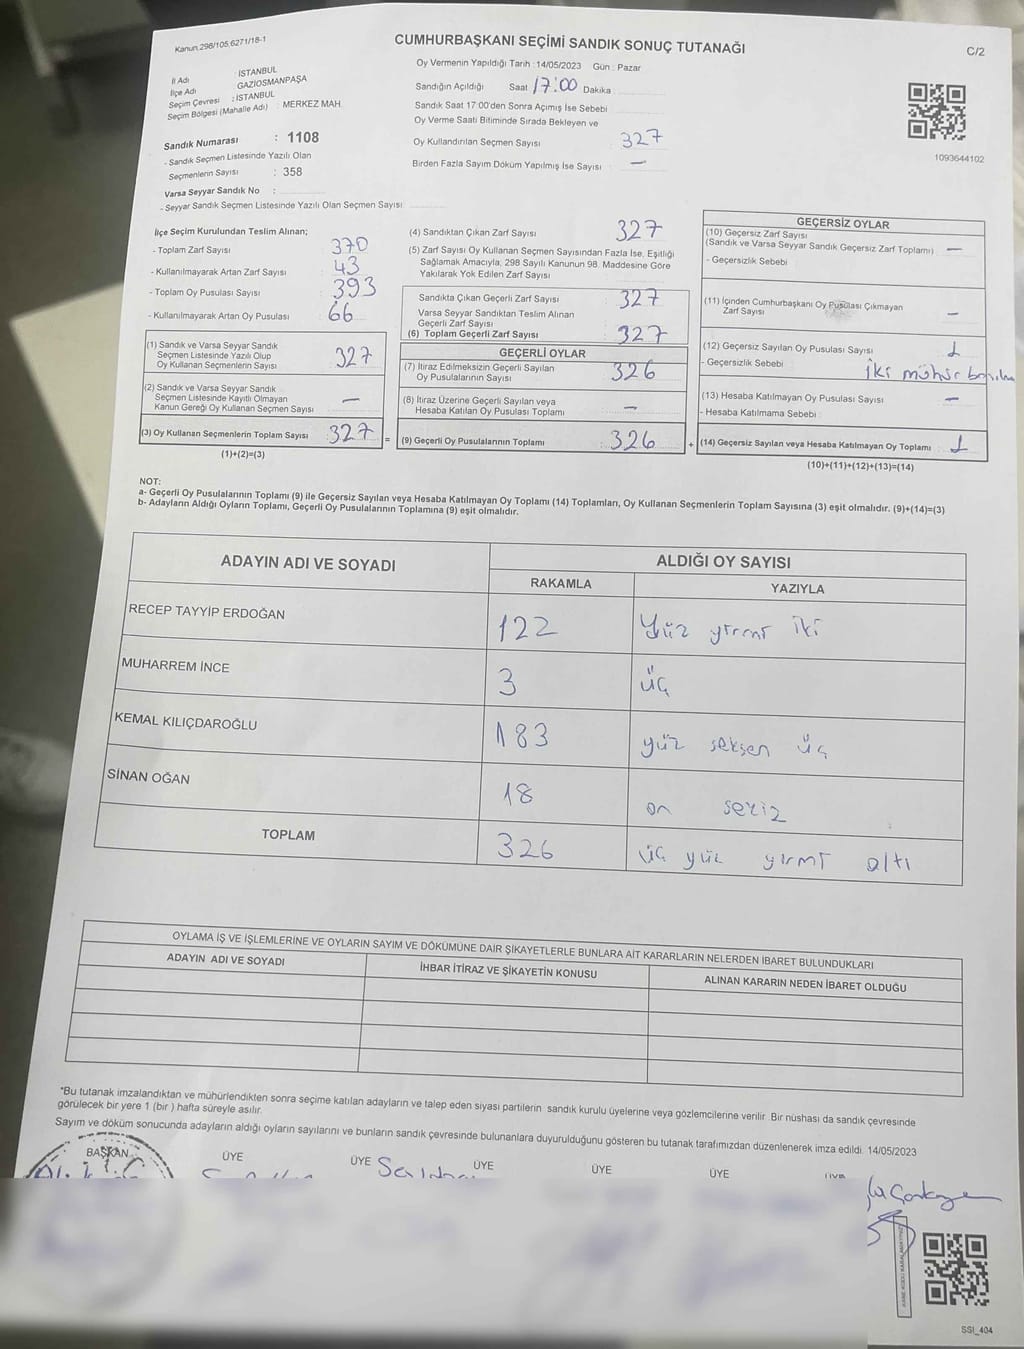 Kanun,298/105,6271/18-1
CUMHURBAŞKANI SEÇİMİ SANDIK SONUÇ TUTANAĞI
C/2
İl Adı : İSTANBUL
İlçe Adı GAZİOSMANPAŞA
Seçim Çevresi : İSTANBUL
Seçim Bölgesi (Mahalle Adı) : MERKEZ MAH.
Sandık Numarası : 1108
- Sandık Seçmen Listesinde Yazılı Olan
Seçmenlerin Sayısı : 358
Varsa Seyyar Sandık No :
- Seyyar Sandık Seçmen Listesinde Yazılı Olan Seçmen Sayısı
Oy Vermenin Yapıldığı Tarih :14/05/2023 Gün : Pazar
Sandığın Açıldığı Saat 17:00 Dakika
Sandık Saat 17:00'den Sonra Açımış İse Sebebi
Oy Verme Saati Bitiminde Sırada Bekleyen ve
Oy Kullandırılan Seçmen Sayısı 327
Birden Fazla Sayım Döküm Yapılmış İse Sayısı —
1093644102
İlçe Seçim Kurulundan Teslim Alınan;
- Toplam Zarf Sayısı 370
- Kullanılmayarak Artan Zarf Sayısı 43
- Toplam Oy Pusulası Sayısı 393
- Kullanılmayarak Artan Oy Pusulası 66
(1) Sandık ve Varsa Seyyar Sandık
Seçmen Listesinde Yazılı Olup
Oy Kullanan Seçmenlerin Sayısı 327
(2) Sandık ve Varsa Seyyar Sandık
Seçmen Listesinde Kayıtlı Olmayan
Kanun Gereği Oy Kullanan Seçmen Sayısı —
(3) Oy Kullanan Seçmenlerin Toplam Sayısı 327 =
(1)+(2)=(3)
(4) Sandıktan Çıkan Zarf Sayısı 327
(5) Zarf Sayısı Oy Kullanan Seçmen Sayısından Fazla İse, Eşitliği
Sağlamak Amacıyla; 298 Sayılı Kanunun 98. Maddesine Göre
Yakılarak Yok Edilen Zarf Sayısı
Sandıkta Çıkan Geçerli Zarf Sayısı 327
Varsa Seyyar Sandıktan Teslim Alınan
Geçerli Zarf Sayısı
(6) Toplam Geçerli Zarf Sayısı 327
GEÇERLİ OYLAR
(7) İtiraz Edilmeksizin Geçerli Sayılan
Oy Pusulalarının Sayısı 326
(8) İtiraz Üzerine Geçerli Sayılan veya
Hesaba Katılan Oy Pusulası Toplamı —
(9) Geçerli Oy Pusulalarının Toplamı : 326 +
GEÇERSİZ OYLAR
(10) Geçersiz Zarf Sayısı
(Sandık ve Varsa Seyyar Sandık Geçersiz Zarf Toplamı) —
- Geçersizlik Sebebi
(11) İçinden Cumhurbaşkanı Oy Pusulası Çıkmayan
Zarf Sayısı —
(12) Geçersiz Sayılan Oy Pusulası Sayısı 1
- Geçersizlik Sebebi İki mühür
(13) Hesaba Katılmayan Oy Pusulası Sayısı —
- Hesaba Katılmama Sebebi
(14) Geçersiz Sayılan veya Hesaba Katılmayan Oy Toplamı 1
(10)+(11)+(12)+(13)=(14)
NOT:
a- Geçerli Oy Pusulalarının Toplamı (9) ile Geçersiz Sayılan veya Hesaba Katılmayan Oy Toplamı (14) Toplamları, Oy Kullanan Seçmenlerin Toplam Sayısına (3) eşit olmalıdır. (9)+(14)=(3)
b- Adayların Aldığı Oyların Toplamı, Geçerli Oy Pusulalarının Toplamına (9) eşit olmalıdır.
ADAYIN ADI VE SOYADI ALDIĞI OY SAYISI
RAKAMLA YAZIYLA
RECEP TAYYİP ERDOĞAN 122 Yüz yirmi iki
MUHARREM İNCE 3 üç
KEMAL KILIÇDAROĞLU 183 yüz seksen üç
SİNAN OĞAN 18 on sekiz
TOPLAM 326 üç yüz yirmi altı
OYLAMA İŞ VE İŞLEMLERİNE VE OYLARIN SAYIM VE DÖKÜMÜNE DAİR ŞİKAYETLERLE BUNLARA AİT KARARLARIN NELERDEN İBARET BULUNDUKLARI
ADAYIN ADI VE SOYADI İHBAR İTİRAZ VE ŞİKAYETİN KONUSU ALINAN KARARIN NEDEN İBARET OLDUĞU
*Bu tutanak imzalandıktan ve mühürlendikten sonra seçime katılan adayların ve talep eden siyasi partilerin sandık kurulu üyelerine veya gözlemcilerine verilir. Bir nüshası da sandık çevresinde
görülecek bir yere 1 (bir) hafta süreyle asılır.
Sayım ve döküm sonucunda adayların aldığı oyların sayılarını ve bunların sandık çevresinde bulunanlara duyurulduğunu gösteren bu tutanak tarafımızdan düzenlenerek imza edildi. 14/05/2023
BAŞKAN ÜYE ÜYE ÜYE ÜYE ÜYE ÜYE
SSI_404